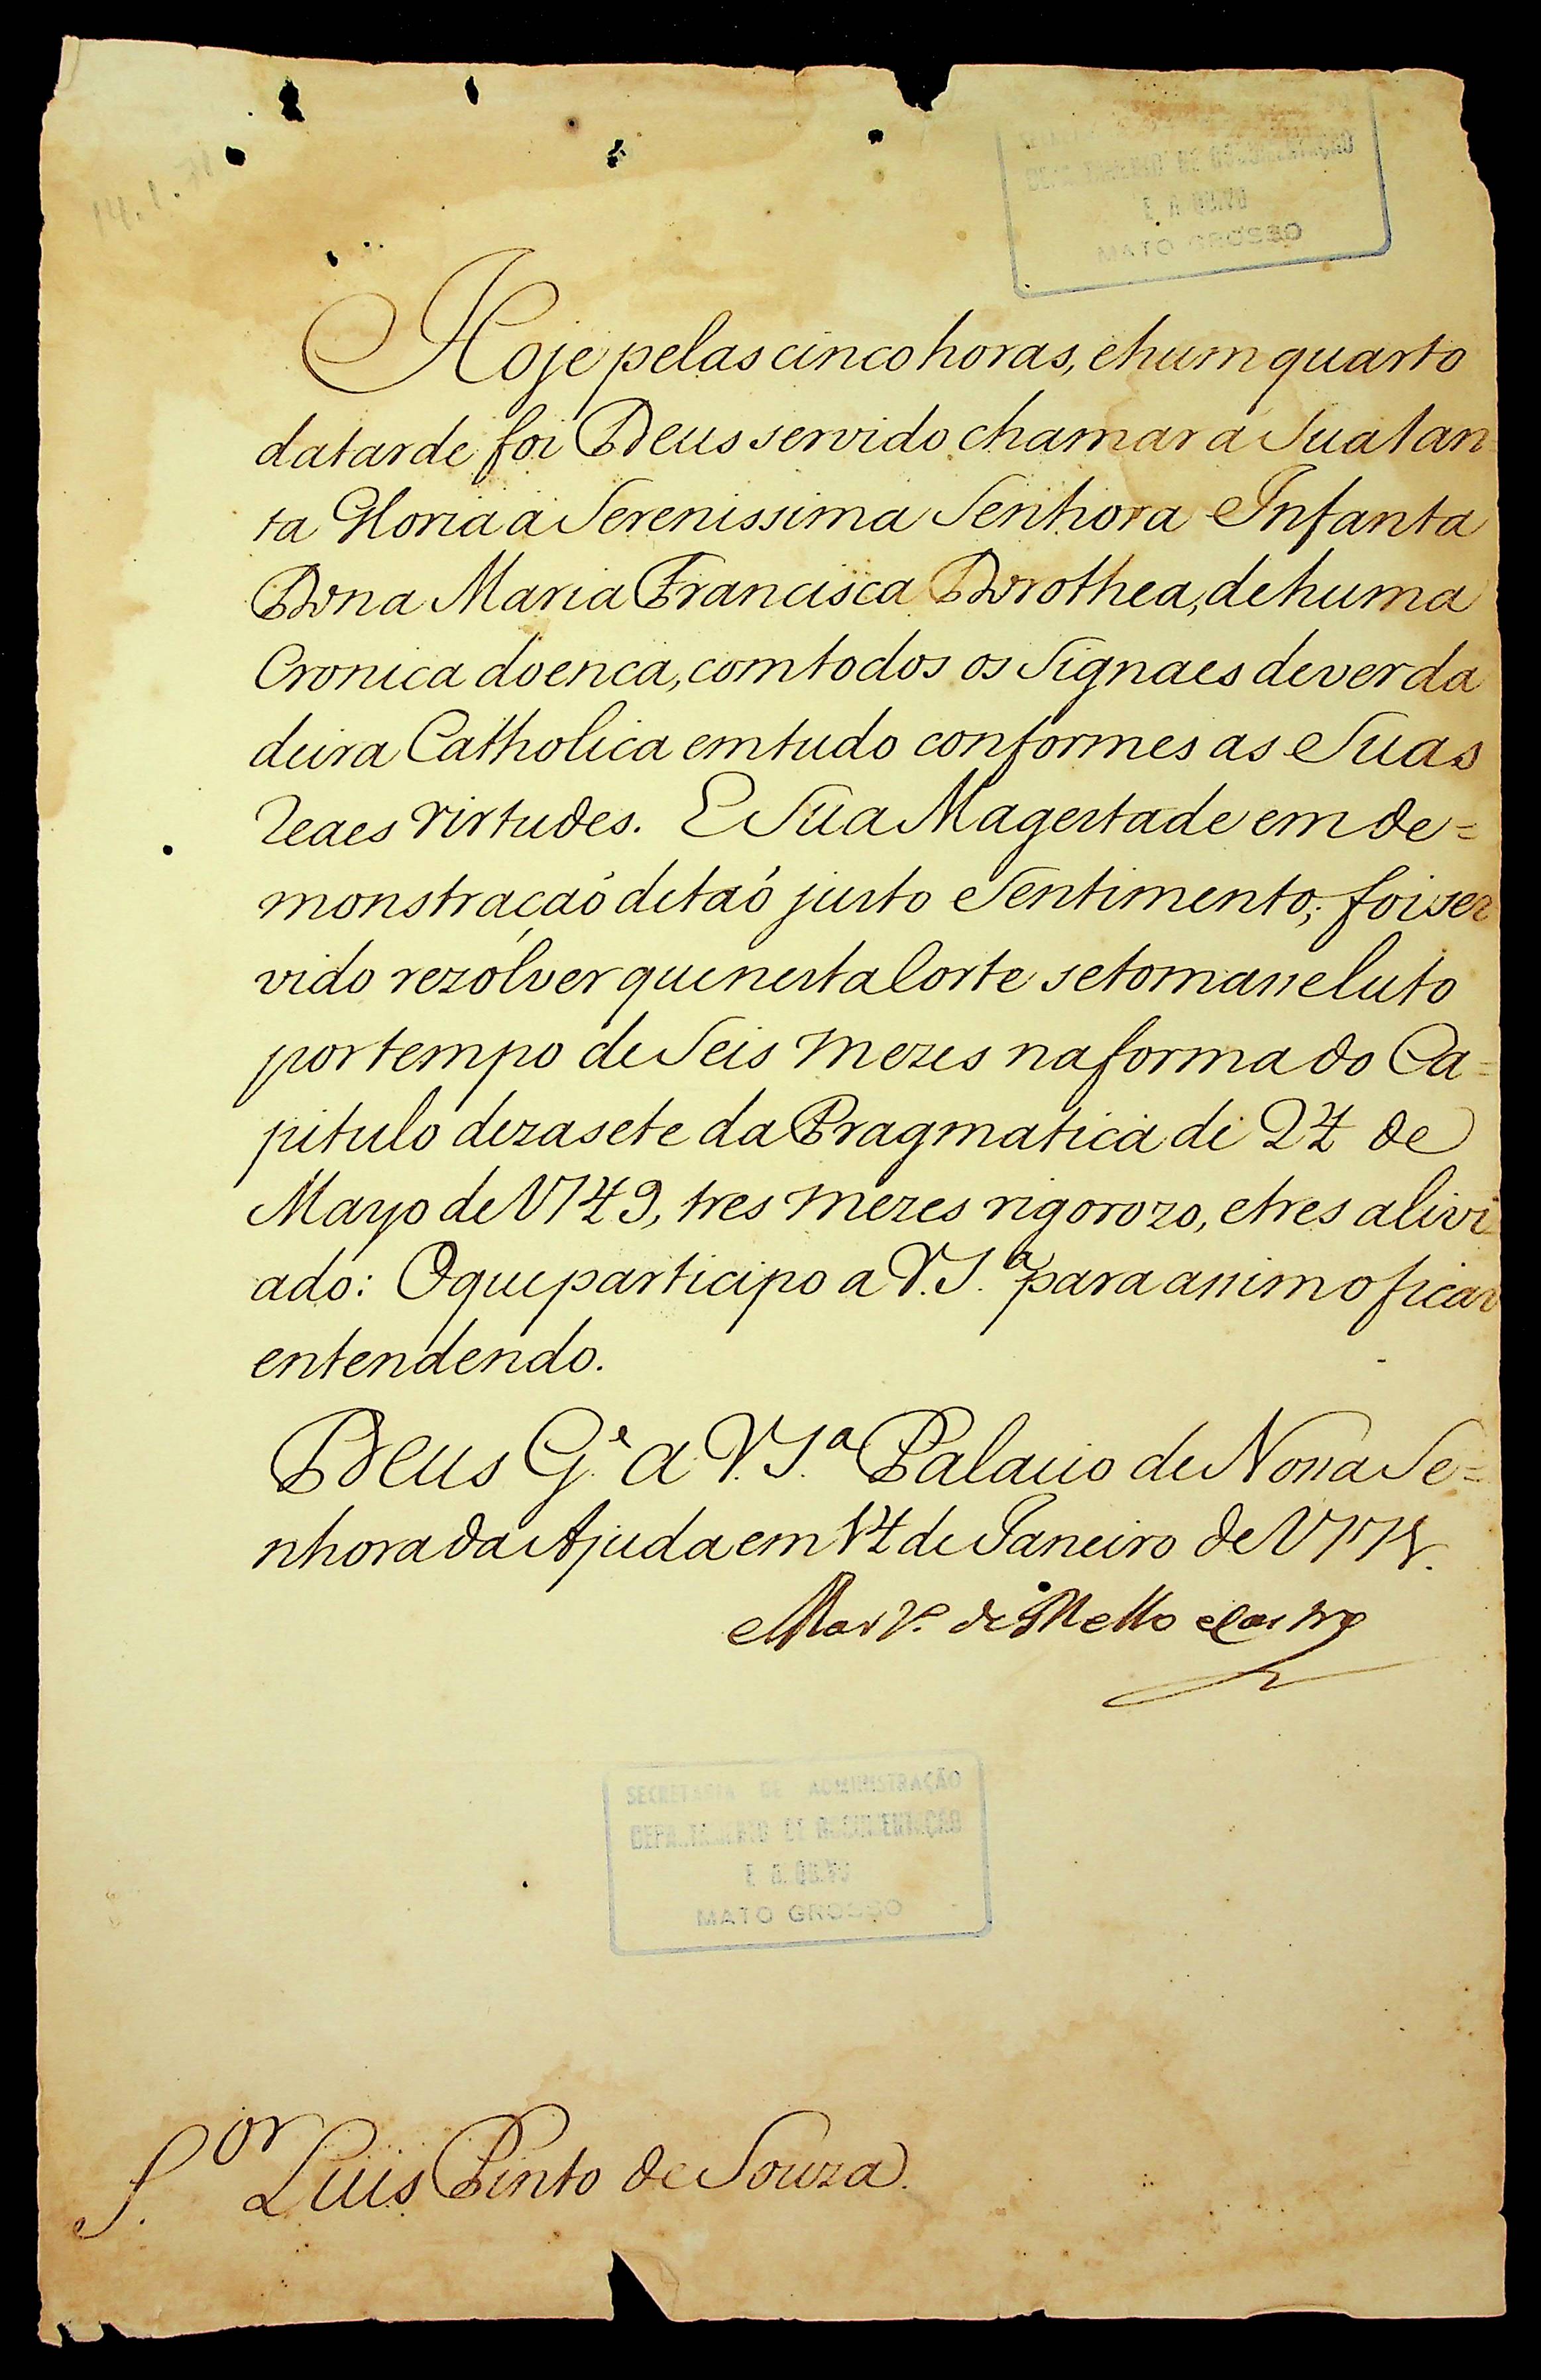 14.1.
DEPARTAMENTO DE DOCUMENTAÇÃO
E ARQUIVO
MATO GROSSO
Hoje pelas cinco horas, e hum quarto
da tarde foi Deus servido chamar a Sua San
ta Gloria a Serenissima Senhora Infanta
Dona Maria Francisca Dorothea, de huma
Cronica doenca, com todos os Signaes de verda
deira Catholica em tudo conformes as Suas
Reaes Virtudes. E Sua Magestade em de=
monstraçaó de taó justo Sentimento; foi ser
vido rezólver que nesta Corte se tomasse luto
por tempo de Seis mezes na forma do Ca=
pitulo dezasete da Pragmatica de 24 de
Mayo de 1749, tres mezes rigorozo, e tres alivi
ado: O que participo a V. S.ª para assim o ficar
entendendo.
Deus G.e a V. S.ª Palacio de Nossa Se=
nhora da Ajuda em 14 de Janeiro de 1771.
Mart.o de Mello e Castro
SECRETARIA DE ADMINISTRAÇÃO
DEPARTAMENTO DE DOCUMENTAÇÃO
E ARQUIVO
MATO GROSSO
S.or Luis Pinto de Souza.